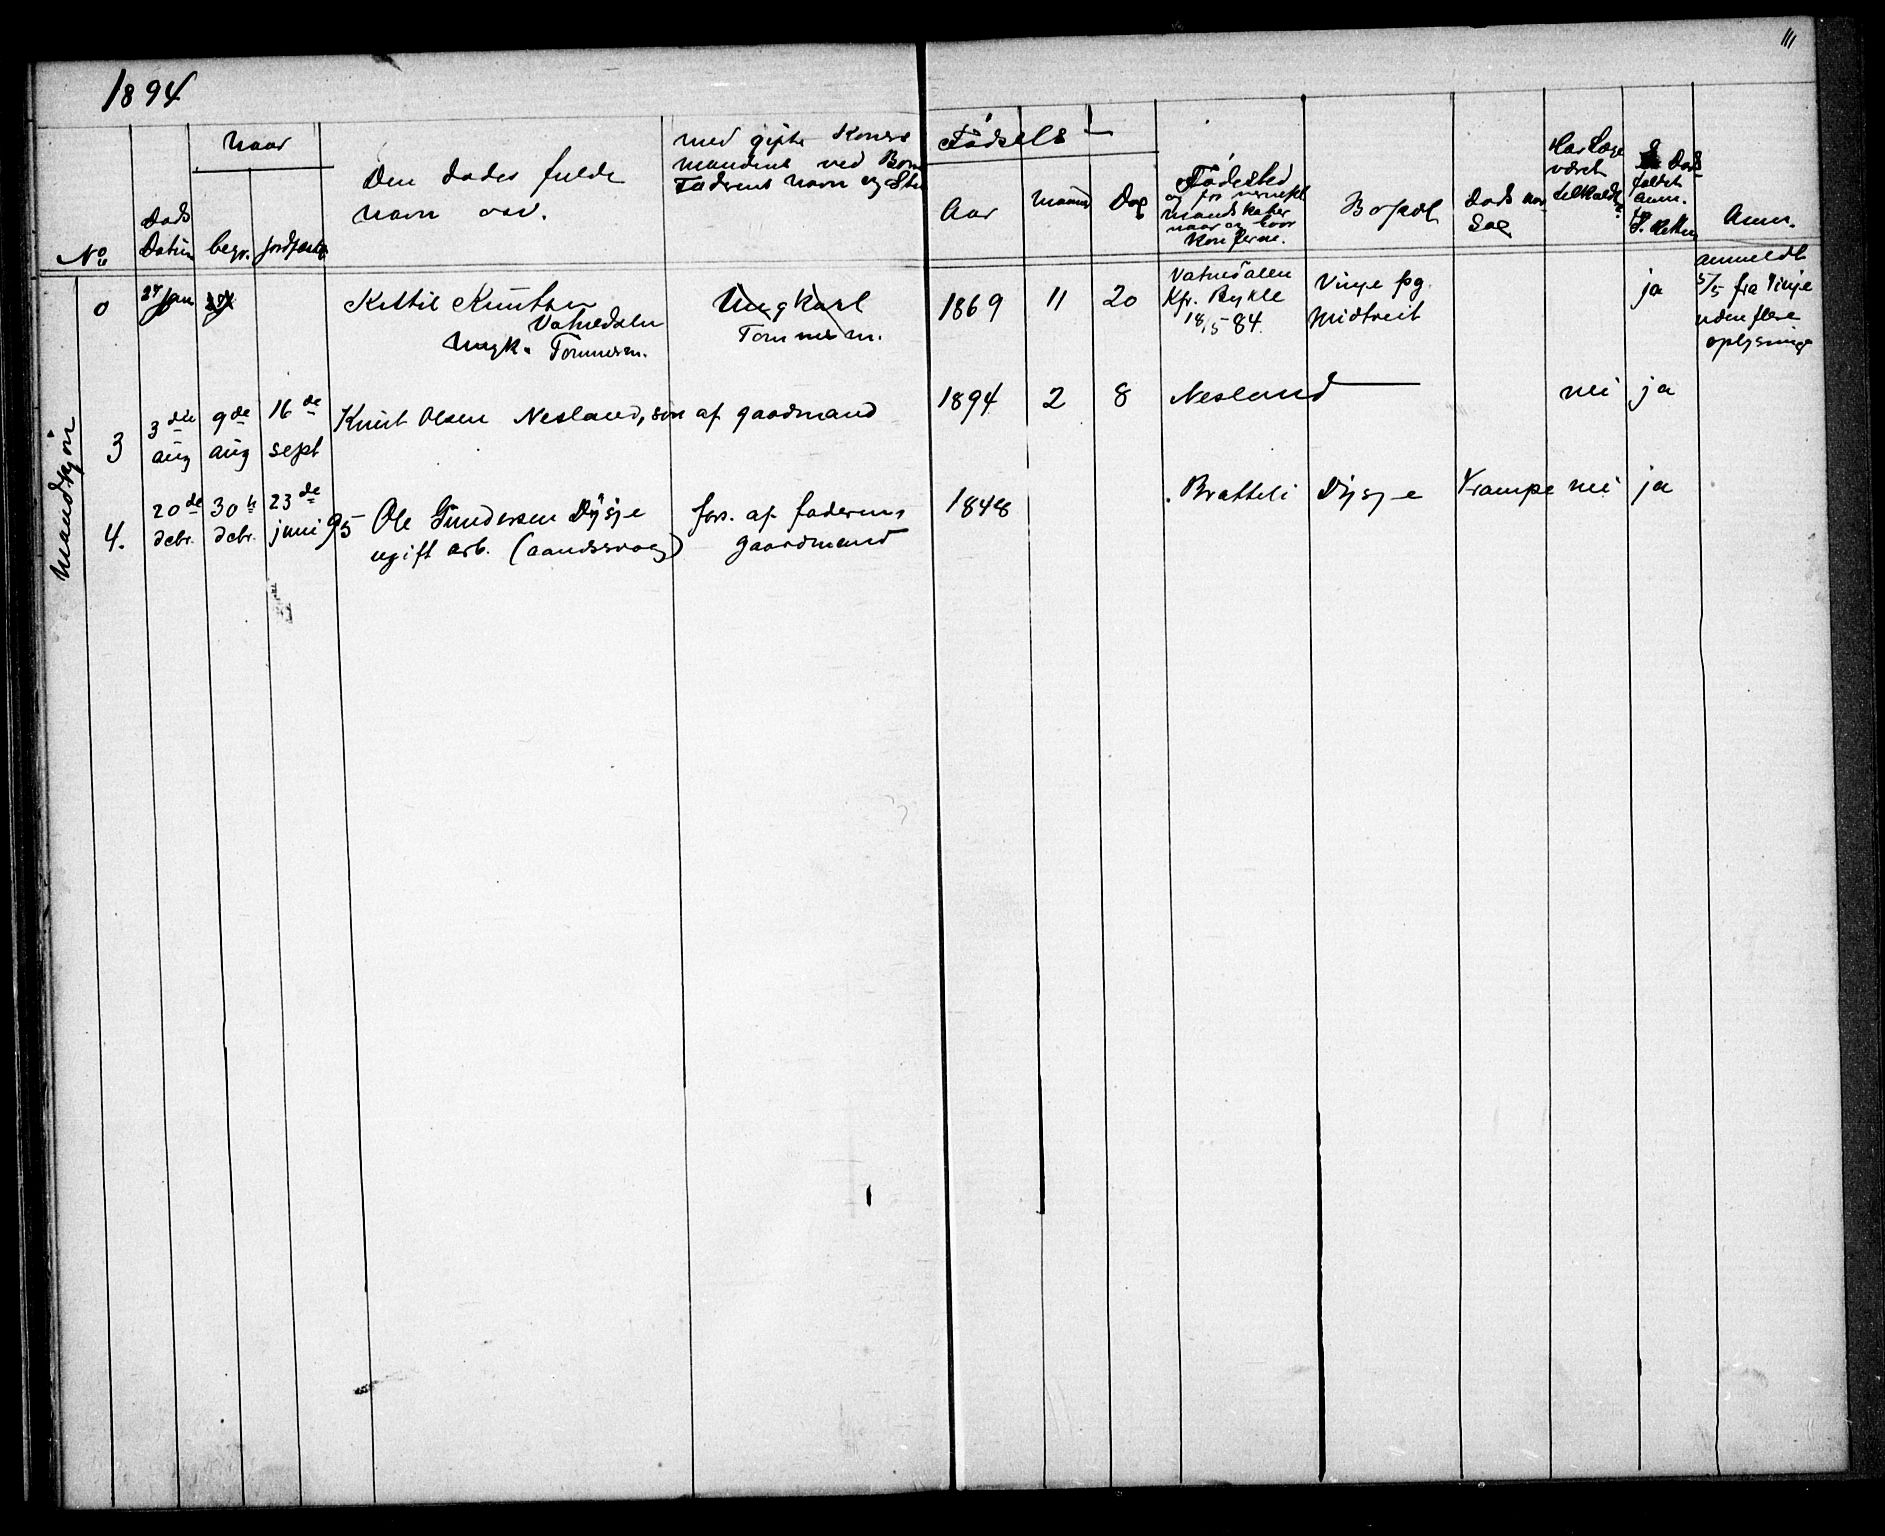 111
1894
No
Døds Datum
Naar
begr.
jordfæstet
Den dødes fulde
navn osv.
med gifte Koners
mandens ved Børn
Faderens navn og
Fødsels
Aar
Maaned
Dag
Fødested
og for
mandskaber
naar og hvor
konferm.
Bopæl
Døds aar
sag
Har Læge
været
tilkaldt
Døds
faldet
anm.
t. Retten
Anm.
Mandkjøn
0 24 Jan Kittil Knutsen
Vatnedalen
Ungk. Tømmerm.
Ungkarl
Tømmerm.
1869 11 20
Vatnedalen
Kfr. Bykle
18/5-84.
Vinje pg.
Midtveit
ja
anmeldt
5/5 fra Vinje
uden flere
oplysninge
3 3die aug 9de aug 16de sept Knut Olsen Nesland, søn af gaardmand 1894 2 8 Nesland nei ja
4. 20de debr. 30te debr. 23de juni 95 Ole Gundersen Dysje
ugift arb. (aandssvag)
fors. af faderen,
gaardmand
1848 Bratteli Dysje Krampe nei ja